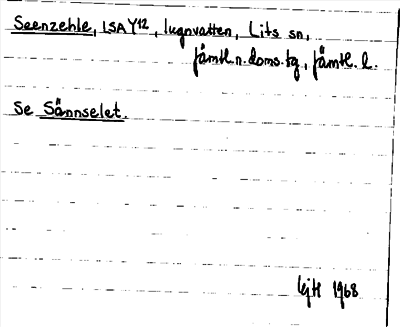 Seenzehle, LSA Y12, lugnvatten, Lits sn,
Jämtl.n.doms.tg, Jämtl. l.
Se Sännselet.
1968